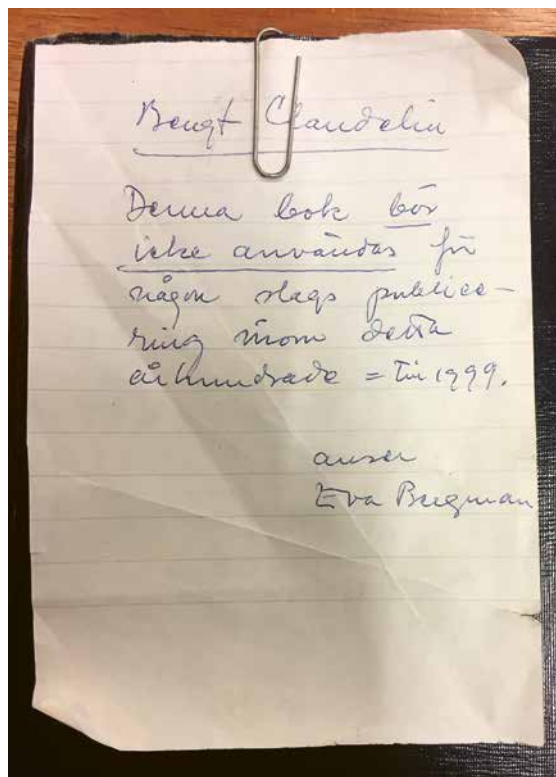 Bengt Claudelin
Denna bok bör
icke användas för
någon slags publice-
ring inom detta
århundrade = till 1999.
anser
Eva Bergman